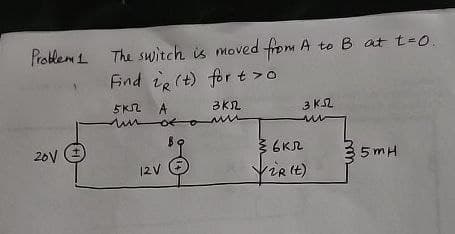 Problem 1 The switch is moved from A to B at t=0.
Find iR (t) for t >0
5KΩ A 3KΩ 3KΩ
B
20V + 12V + 6KΩ 5mH
iR (t)